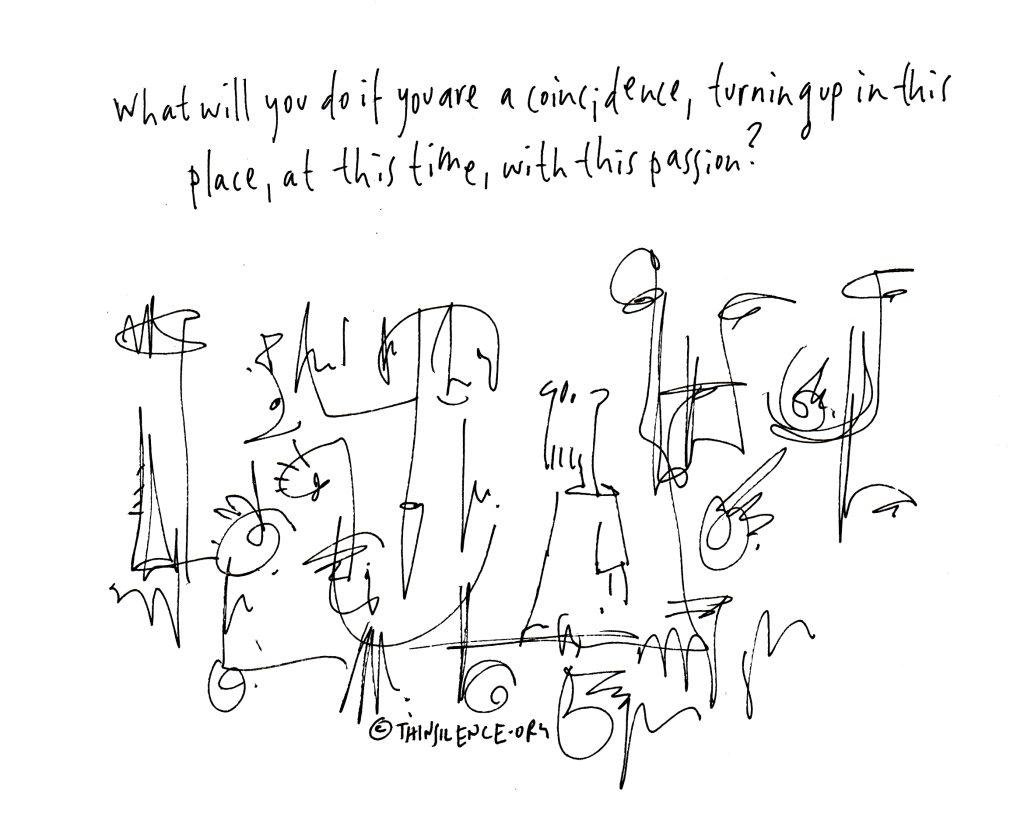 What will you do if you are a coincidence, turning up in this
place, at this time, with this passion?
© THINSILENCE.ORG